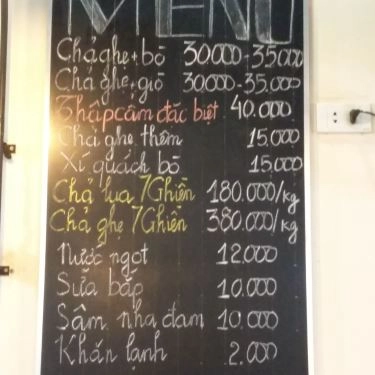 MENU
Chả ghẹ + bò 30.000 - 35.000
Chả ghẹ + giò 30.000 - 35.000
Thập cẩm đặc biệt 40.000
Chả ghẹ thêm 15.000
Xí quách bò 15.000
Chả lụa 7Ghiền 180.000/kg
Chả ghẹ 7Ghiền 380.000/kg
Nước ngọt 12.000
Sữa bắp 10.000
Sâm nha đam 10.000
Khăn lạnh 2.000